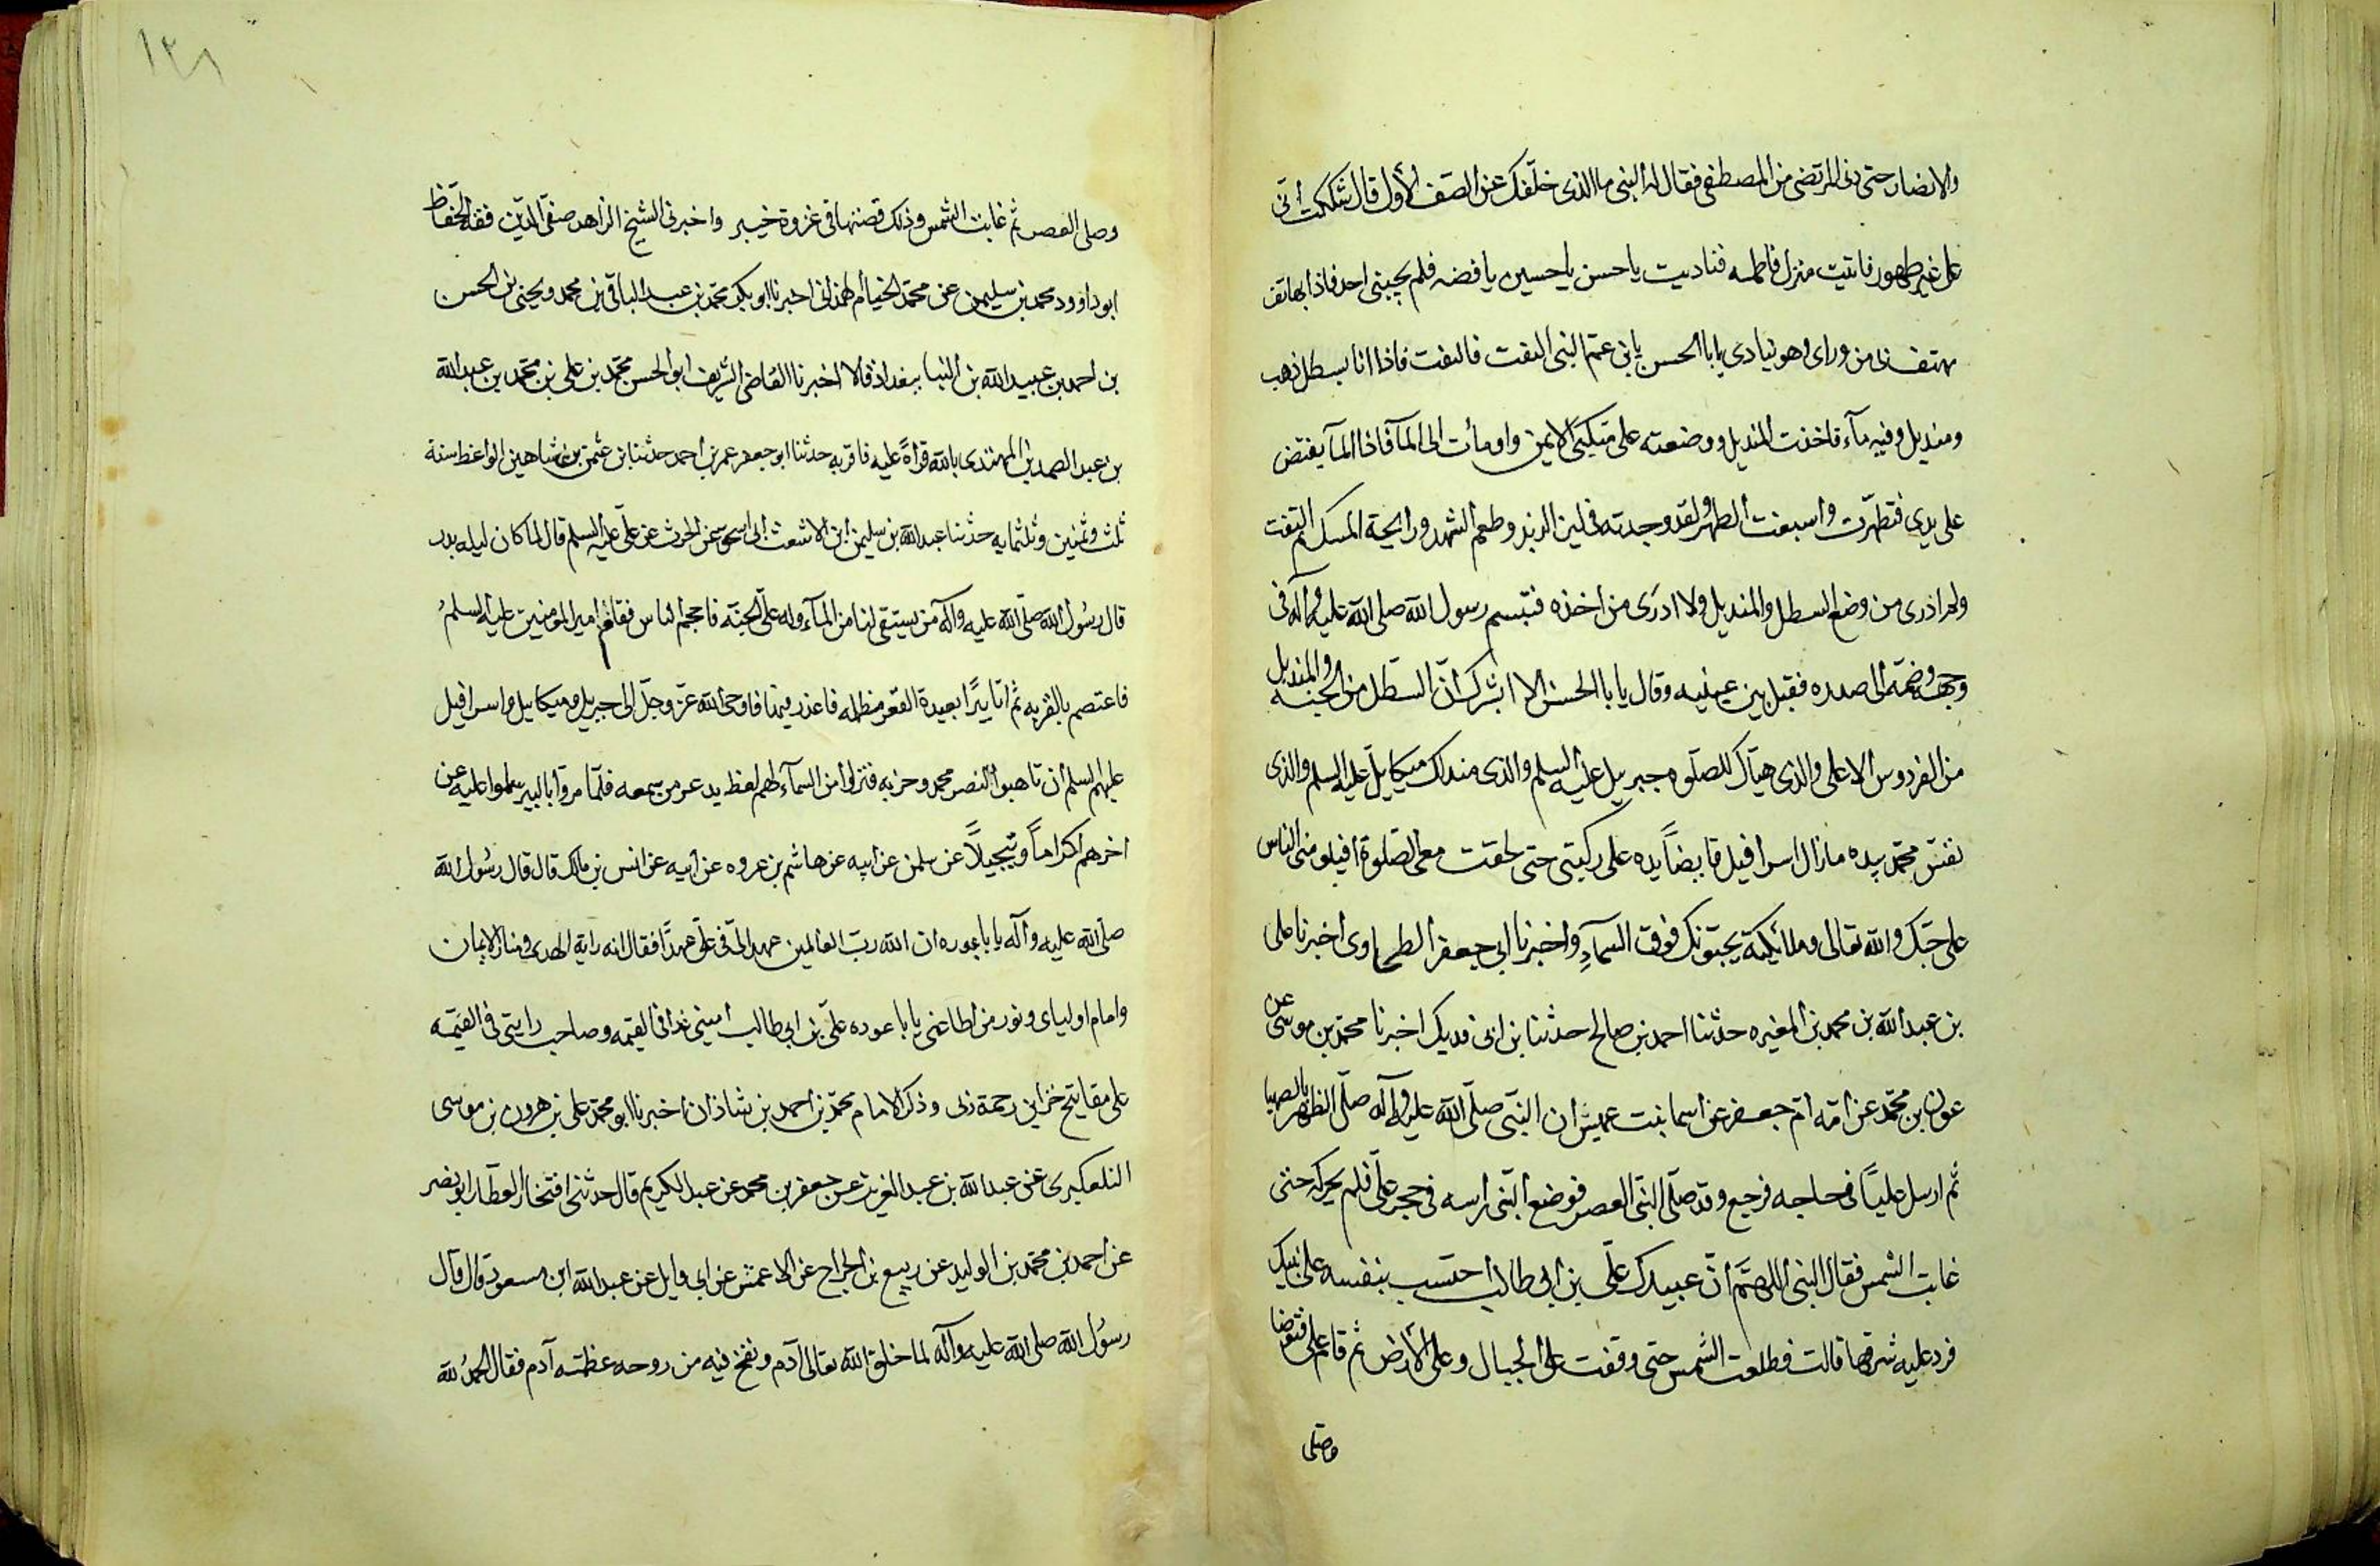 والانصار حتى دنى المرتضى من المصطفى فقال له النبى ما الذى خلفك عن الصف الأول قال شككت أنى
على غير طهور فاتيت منزل فاطمه فناديت ياحسن ياحسين يا فضه فلم يجيبنى احد فاذا بهاتف
يهتف بى من وراى وهو ينادى يا با الحسن يا بن عم النبى التفت فالتفت فاذا انا بسطل ذهب
ومنديل وفيه مآء فاخذت المنديل ووضعته على منكبى الايمن واومأت الى المآ فاذا المآ يفتض
على يدى فتطهرت واسبغت الطهر ولقد وجدته فى لين الزبد وطعم الشهد ورايحة المسك ثم التفت
ولم ادرى من وضع السطل والمنديل ولا ادرى من اخذه فتبسم رسول الله صلى الله عليه وآله فى
وجهه وضمه الى صدره فقبل بين عينيه وقال يا با الحسن الا ابشرك ان السطل من الجنه والمنديل
من الفردوس الاعلى والذى هيأك للصلوه جبرييل عليه السلم والذى مندلك ميكاييل عليه السلم والذى
نفس محمد بيده مازال اسرافيل قابضاً يده على ركبتى حتى لحقت معى الصلوة افيلومنى الناس
على حبك والله تعالى وملائكته يحبونك فوق السمآءِ واخبرنا ابى جعفر الطحاوى اخبرنا على
بن عبدالله بن محمد بن المغيره حدثنا احمد بن صالح حدثنا بن ابى فديك اخبرنا محمد بن موسى عن
عون بن محمد عن امه ام جعفر عن اسما بنت عميس ان النبى صلى الله عليه وآله صلى الظهر بالصهبا
ثم ارسل علياً فى حاجه فرجع وقد صلى النبى العصر فوضع النبى راسه فى حجر على فلم يحركه حتى
غابت الشمس فقال النبى اللهم ان عبيدك على بن ابى طالب احتسب بنفسه على نبيك
فرد عليه شرقها قالت فطلعت الشمس حتى وقفت على الجبال وعلى الأرض ثم قام على فتوضا
وصلى
١٣٨
وصلى العصر ثم غابت الشمس وذلك قصتها فى غزوة خيبر واخبرنى الشيخ الزاهد صفى الدين فقه الحفاظ
ابوداوود محمد بن سليمن عن محمد الخيام الهمذانى اخبرنا ابو بكر محمد بن عبد الباقى بن محمد ويحيى بن الحسن
بن احمد بن عبيدالله بن البنا ببغداذ قالا اخبرنا القاضى الشريف ابو الحسن محمد بن على بن محمد بن عبيدالله
بن عبد الصمد بن المهتدى بالله قرأةً عليه فاقربه حدثنا ابو جعفر عمر بن احمد حدثنا بن عثمن بن شاهين الواعظ سنة
ثلث وثمنين وثلثمايه حدثنا عبدالله بن سليمن ابن الاشعث ابى اسحق عن الحرث عن على عليه السلم قال لما كان ليله بدر
قال رسول الله صلى الله عليه وآله من يستقى لنا من المآء وله على الجنه فاحجم الناس فقام امير المومنين عليه السلم
فاعتصم بالقربه ثم اتا بيرًا بعيدة القعر مظلمه فاوحى الله عز وجل الى جبريل وميكاييل واسرافيل
عليهم السلم ان تاهبوا لنصر محمد وحزبه فنزلوا من السمآء لهم لغظ يدعر من سمعه فلما مروا بالبير سلموا عليه عن
اخرهم اكراماً وتبجيلاً عن سلمن عن ابيه عن هاشم بن عروه عن ابيه عن انس بن مالك قال قال رسول الله
صلى الله عليه وآله يا با عوره ان الله رب العالمين عهد الى فى على عهدًا فقال انه راية الهدى ومنار الايمان
وامام اوليآى ونور من اطاعنى يا با عوده على بن ابى طالب امينى غدا فى القيمه وصاحب رايتى فى القيمه
على مفاتيح خزاين رحمة ربى وذكر الامام محمد بن احمد بن شاذان اخبرنا ابو محمد على بن هرون بن موسى
التلعكبرى عن عبدالله بن عبد العزيز عن جعفر بن محمد عن عبد الكريم قال حدثنى افتخار العطار ابو نصر
عن احمد بن محمد بن الوليد عن ربيع بن الجراح عن الاعمش عن ابى وايل عن عبدالله ابن مسعود قال قال
رسول الله صلى الله عليه وآله لما خلق الله تعالى آدم ونفخ فيه من روحه عظمته آدم فقال الحمد لله